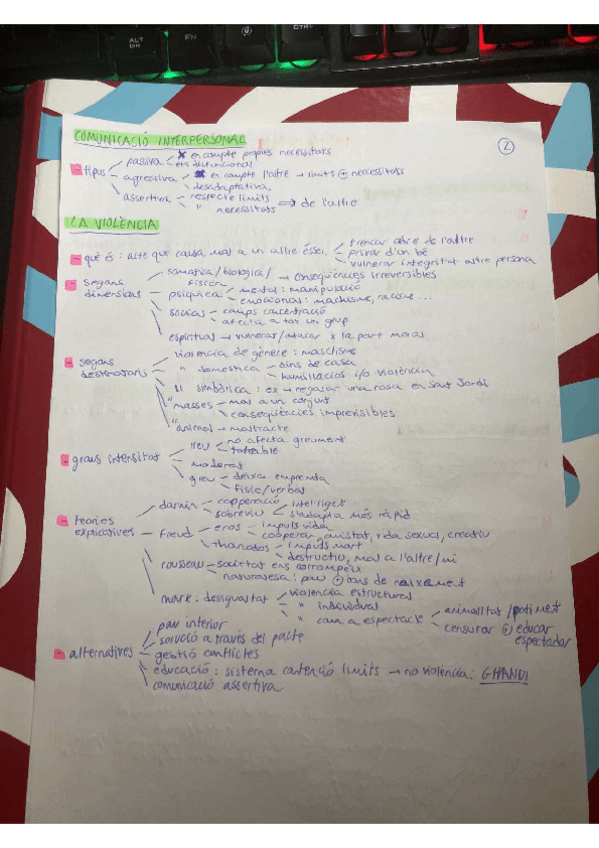 ALT
FN
CTRL
COMUNICACIÓ INTERPERSONAL
2
tipus
passiva
✗ en compte pròpies necessitats
ets disfuncional
agressiva
✗ en compte l'altre → límits ⊕ necessitats
desadaptativa
assertiva
respecte límits
" necessitats ⇒ de l'altre
LA VIOLÈNCIA
què és: acte que causa mal a un altre ésser
frenar de l'altre
privar d'un bé
vulnerar integritat altre persona
segons dimensions
somàtica/biològica/física → conseqüències irreversibles
psíquica
mental: manipulació
emocional: machisme, racisme ...
social
camps concentració
afecta a tot un grup
espiritual → vulnerar/atacar x la part
segons destinataris
violència de gènere: masclisme
" domèstica
dins de casa
humiliacios i/o violència
" simbòlica: ex → regalar una rosa en Sant Jordi
" masses
mal a un conjunt
conseqüències imprevisibles
" animal → maltracte
graus intensitat
lleu
no afecta greument
moderat
greu
deixa empremta
físic/verbal
teories explicatives
darwin
cooperació
sobreviu
intel·ligent
s'adapta més ràpid
Freud
eros
impuls vida
cooperar, amistat, vida sexual, creatiu
thanatos
impuls mort
destructiu, mal a l'altre/mi
rousseau
societat ens corrompeix
naturalesa: pau ⊕ bons de naixement
marx: desigualtat
violència estructural
" individual
" com a espectacle
animalitat/patiment
censurar ⊕ educar espectador
alternatives
pau interior
solució a través del pacte
gestió conflictes
educació: sistema contenció límits → no violència: GHANDI
comunicació assertiva